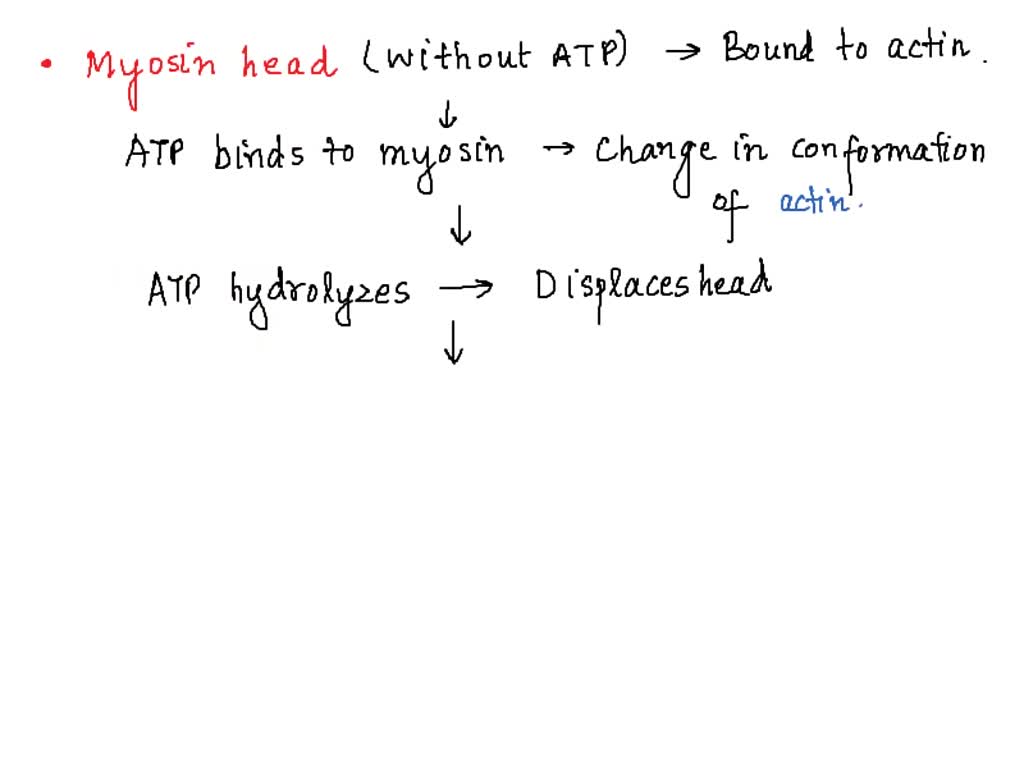 • Myosin head (without ATP) → Bound to actin.
↓
ATP binds to myosin → Change in conformation
of actin.
↓
ATP hydrolyzes → Displaces head
↓